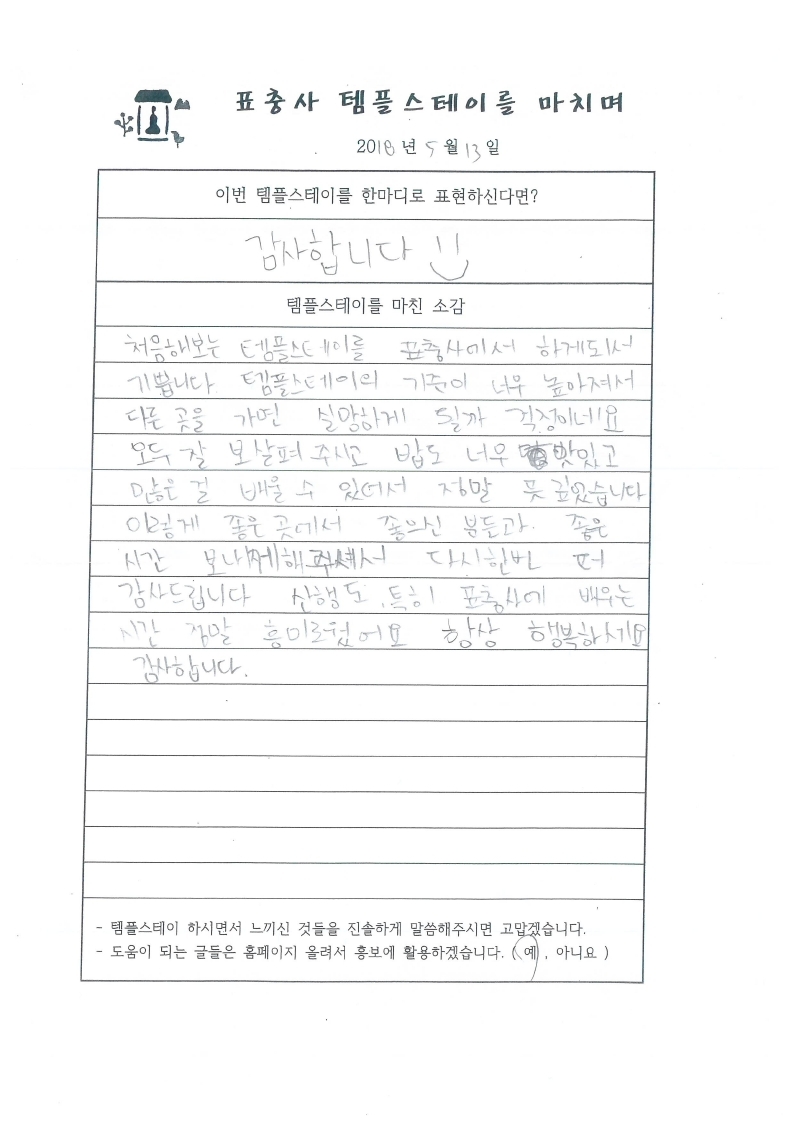 표충사 템플스테이를 마치며
2018년 5월 13일
이번 템플스테이를 한마디로 표현하신다면?
감사합니다
템플스테이를 마친 소감
처음해보는 템플스테이를 표충사에서 하게되서
기쁩니다 템플스테이의 기준이 너무 높아져서
다른 곳을 가면 실망하게 될까 걱정이네요
모두 잘 보살펴 주시고 밥도 너무 맛있고
많은 걸 배울 수 있어서 정말 뜻 깊었습니다
이렇게 좋은 곳에서 좋으신 분들과 좋은
시간 보내게해주셔서 다시한번 더
감사드립니다 산행도, 특히 표충사에 배우는
시간 정말 흥미로웠어요 항상 행복하세요
감사합니다.
- 템플스테이 하시면서 느끼신 것들을 진솔하게 말씀해주시면 고맙겠습니다.
- 도움이 되는 글들은 홈페이지 올려서 홍보에 활용하겠습니다. ( 예 , 아니요 )